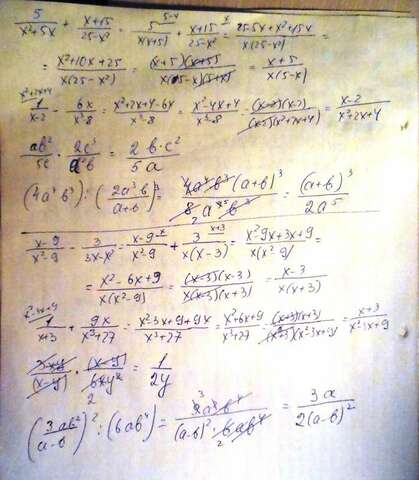 5/(x²+5x) + (x+15)/(25-x²) = 5/(x(x+5)) + (x+15)/(25-x²) = (25-5x+x²+15x)/(x(25-x²)) =
= (x²+10x+25)/(x(25-x²)) = ((x+5)(x+5))/(x(5-x)(5+x)) = (x+5)/(x(5-x))
1/(x-2) - 6x/(x³-8) = (x²+2x+4-6x)/(x³-8) = (x²-4x+4)/(x³-8) = ((x-2)(x-2))/((x-2)(x²+2x+4)) = (x-2)/(x²+2x+4)
ab²/5c · 2c³/a²b = (2b·c²)/5a
(4a³b³) : (2a³b/(a+b))³ = (4a³b³(a+b)³)/(8a⁵b³) = (a+b)³/2a⁵
(x-9)/(x²-9) - 3/(3x-x²) = (x-9)/(x²-9) + 3/(x(x-3)) = (x²-9x+3x+9)/(x(x²-9)) =
= (x²-6x+9)/(x(x²-9)) = ((x-3)(x-3))/(x(x-3)(x+3)) = (x-3)/(x(x+3))
1/(x+3) + 9x/(x³+27) = (x²-3x+9+9x)/(x³+27) = (x²+6x+9)/(x³+27) = ((x+3)(x+3))/((x+3)(x²-3x+9)) = (x+3)/(x²-3x+9)
3xy/(x-y) · (x-y)/6xy² = 1/2y
(3ab²/(a-b))² : (6ab⁴) = 9a²b⁴/((a-b)²·6ab⁴) = 3a/(2(a-b)²)